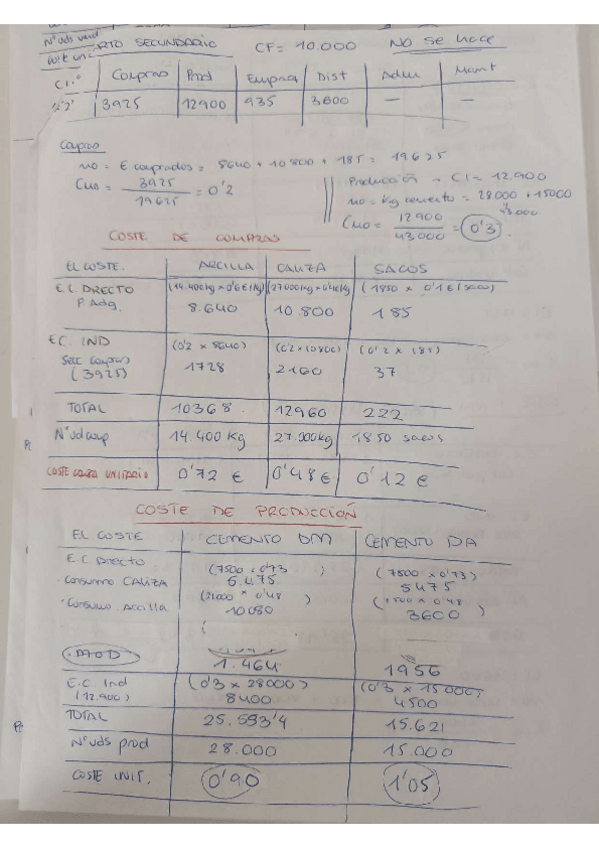 Nº uds vend
RTO SECUNDARIO CF = 10.000 No se hace
C1.º Compras Prod Empaq Dist Adm Mant
2º2ª 3925 12900 935 3800 — —
Compras
uo = € comprados = 8640 + 10800 + 185 = 19625
Cuo = 3925 / 19625 = 0'2
Producción → CI = 12.900
uo = Kg cemento = 28000 + 15000
43.000
Cuo = 12900 / 43000 = 0'3
COSTE DE COMPRAS
EL COSTE. ARCILLA CALIZA SACOS
E.C. DIRECTO (14.400kg x 0'6€/kg) (27000kg x 0'4€/kg) (1850 x 0'1€/saco)
P. Adq. 8.640 10.800 185
E.C. IND (0'2 x 8640) (0'2 x 10800) (0'2 x 185)
Secc Compras 1728 2160 37
(3925)
TOTAL 10368 12960 222
Nº ud comp 14.400 Kg 27.000kg 1850 sacos
COSTE COMPRA UNITARIO 0'72 € 0'48 € 0'12 €
COSTE DE PRODUCCIÓN
EL COSTE CEMENTO DM CEMENTO DA
E.C Directo (7500 x 0'73) (7500 x 0'73)
· Consumo CALIZA 5.475 5475
(21000 x 0'48) (7500 x 0'48)
· Consumo Arcilla 10080 3600
MOD 1.464 1956
E.C Ind (0'3 x 28000) (0'3 x 15000)
(12.900) 8400 4500
TOTAL 25.593'4 15.621
Nº uds prod 28.000 15.000
COSTE UNIT. 0'90 1'05